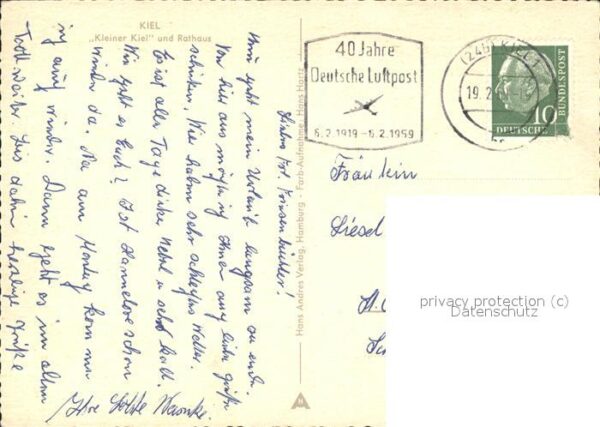 KIEL
„Kleiner Kiel" und Rathaus
40 Jahre
Deutsche Luftpost
5.2.1919 - 6.2.1959
(24b) KIEL 1
19.2.
10
DEUTSCHE
BUNDESPOST
Hans Andres Verlag, Hamburg · Farb-Aufnahme: Hans Hartz
Liebe
nun geht mein Urlaub langsam zu ende.
Von hier aus möchte ich Ihnen liebe Grüße
schicken. Wir haben sehr schlechtes Wetter.
Es ist alle Tage dicker Nebel u. sehr kalt.
Wie geht es Euch? Ist Hannelore schon
wieder da. Na am Montag komme
ich auch wieder. Dann geht es im alten
Trott weiter. Bis dahin herzliche Grüße
Ihre Lotte
Fräulein
Liesel
privacy protection (c)
Datenschutz